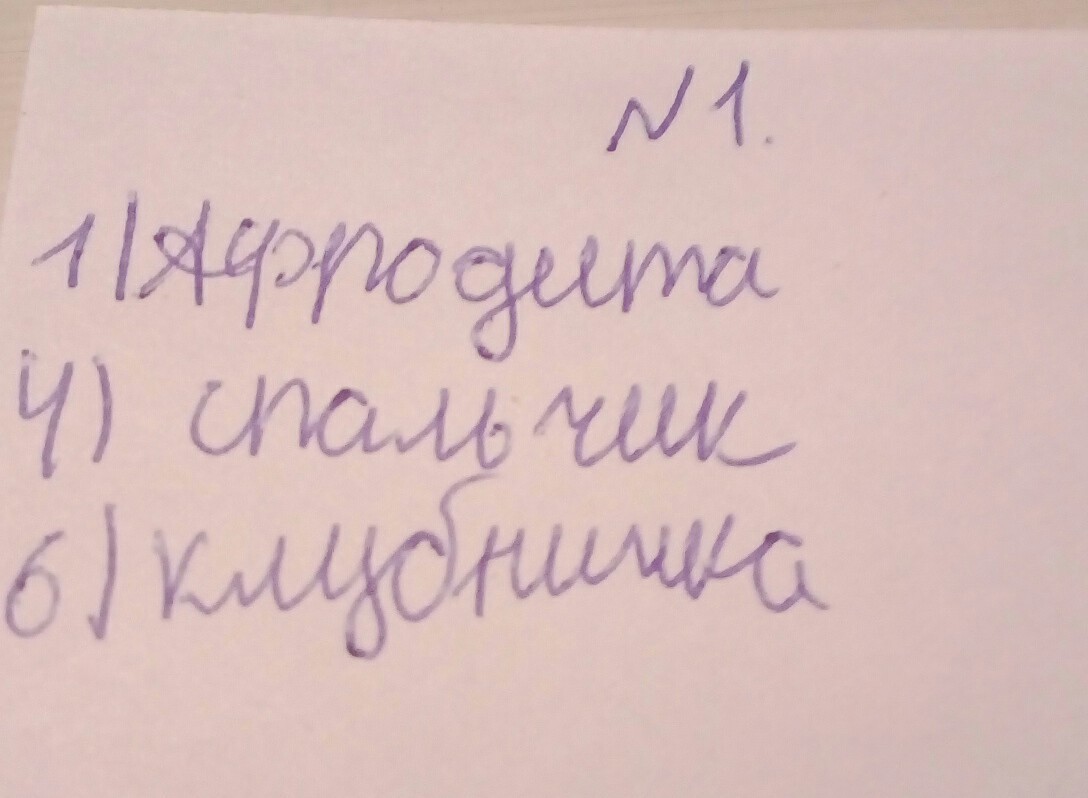 N1.
1) Афродита
4) спальчик
6) клубничка